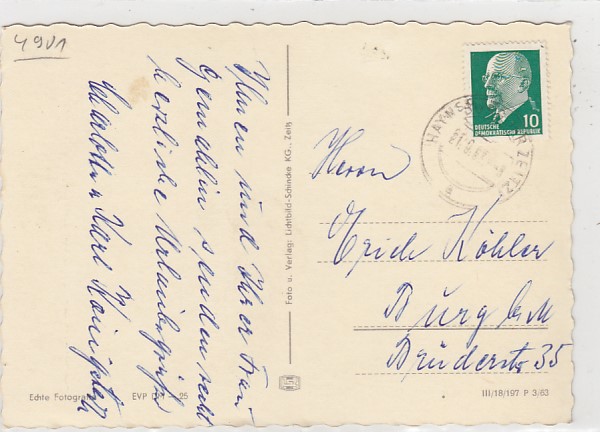 4901
Ihnen und Ihrer Frau
Gemahlin senden recht
herzliche Urlaubsgrüße
Elisabeth u. Karl
Foto u. Verlag: Lichtbild-Schincke KG., Zeitz
10
DEUTSCHE
DEMOKRATISCHE REPUBLIK
HAYNSB
ZEITZ
Herrn
Erich Köhler
Burg b. M
Brüderstr. 35
Echte Fotografie
EVP DM -.25
III/18/197 P 3/63